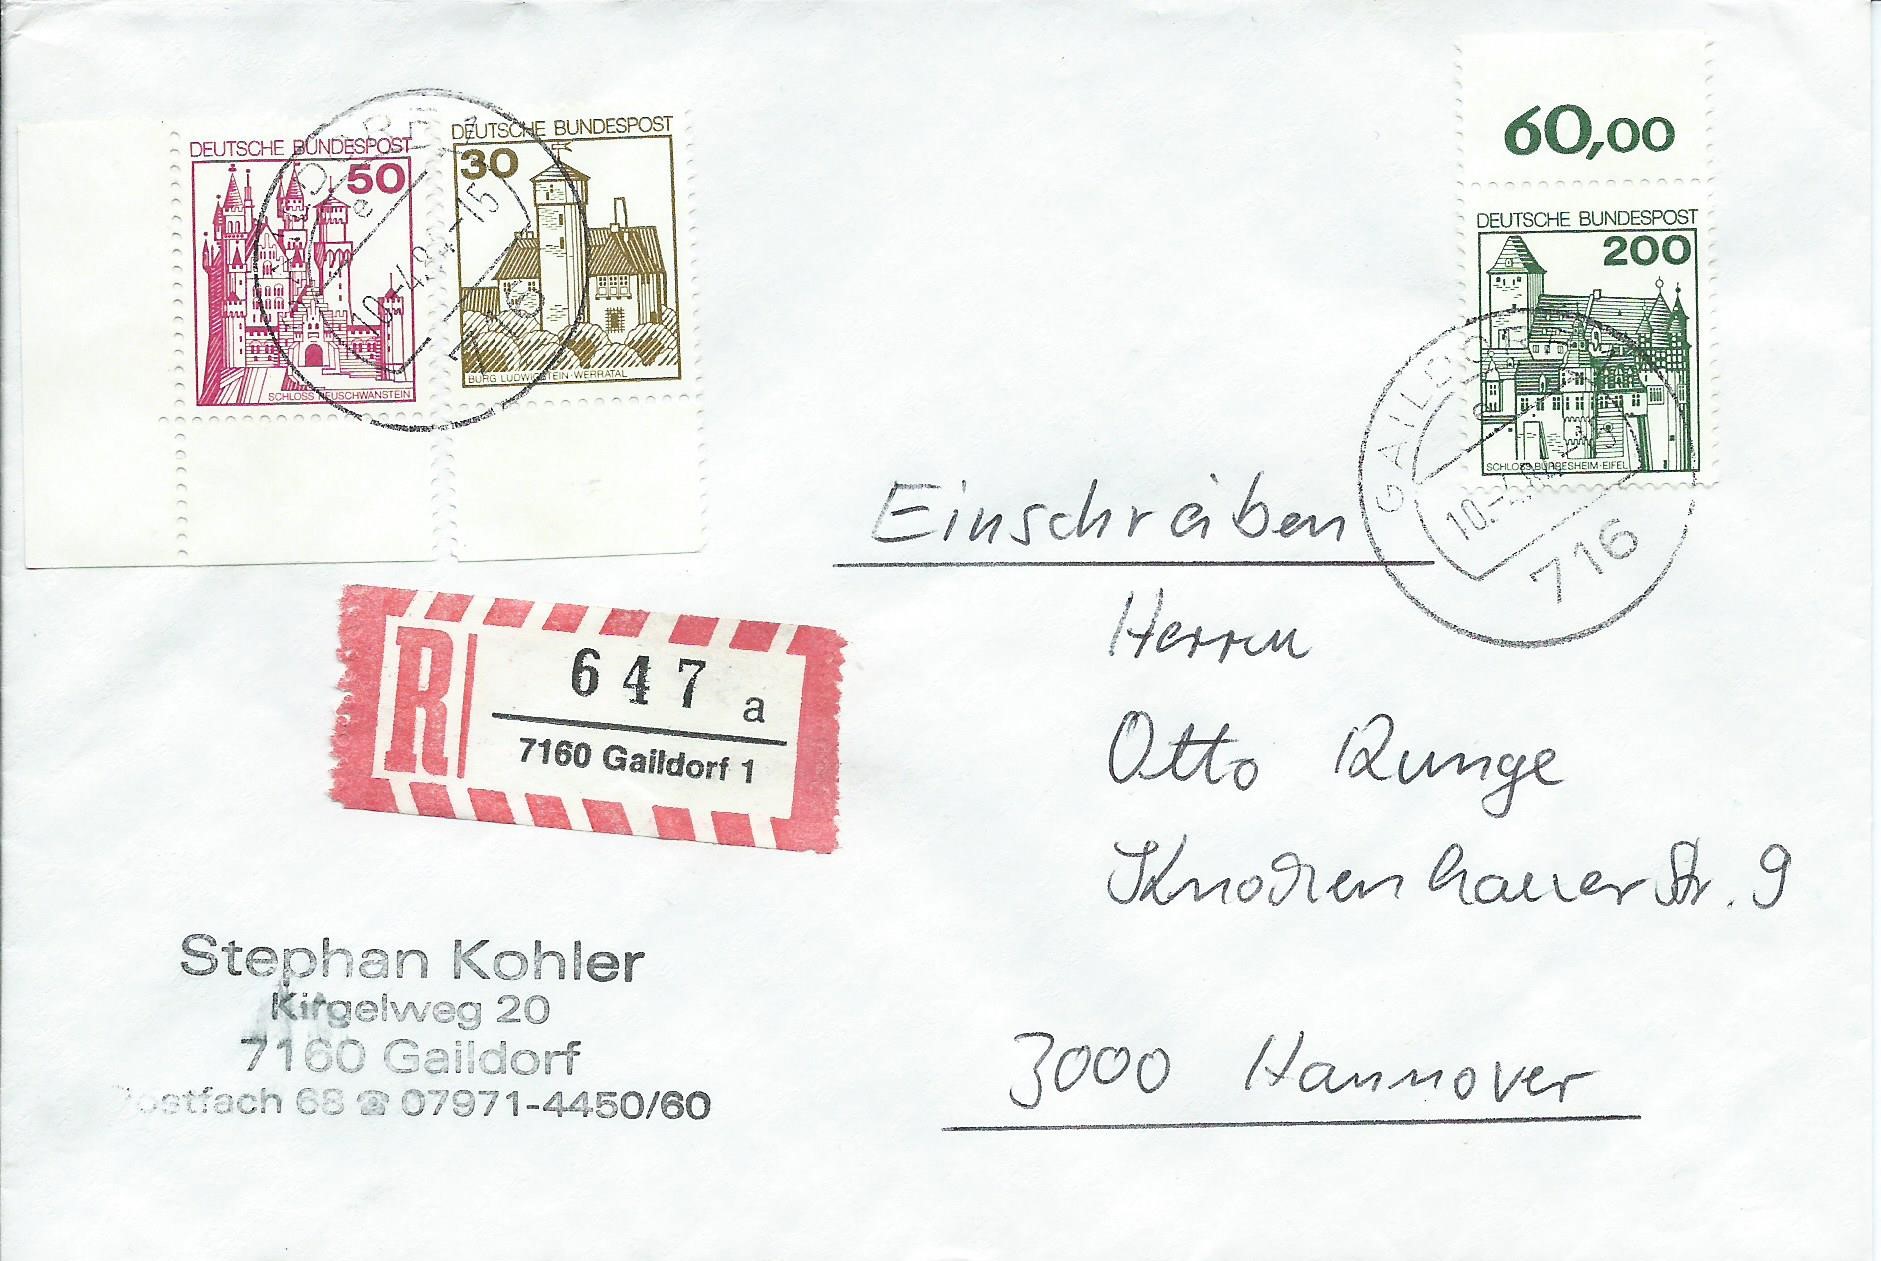 DEUTSCHE BUNDESPOST
50
SCHLOSS NEUSCHWANSTEIN
DEUTSCHE BUNDESPOST
30
BURG LUDWIGSTEIN·WERRATAL
e
10.-4.84-15
716
60,00
DEUTSCHE BUNDESPOST
200
SCHLOSS BÜRRESHEIM·EIFEL
GAILDORF
e
716
Einschreiben
Herrn
Otto Runge
Knochenhauer Str. 9
3000 Hannover
R
647 a
7160 Gaildorf 1
Stephan Kohler
Kirgelweg 20
7160 Gaildorf
Postfach 68 ☎ 07971-4450/60